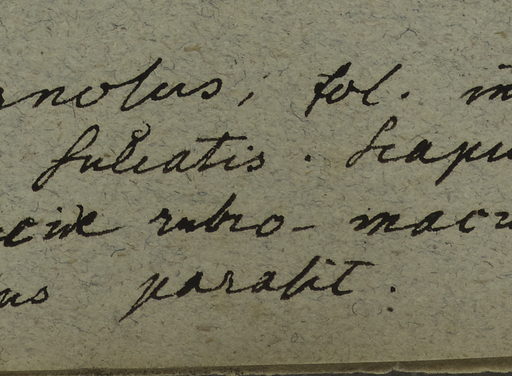 rnolus, fol. in
sulcatis. scapu
cide rubro-macu
us parabit.